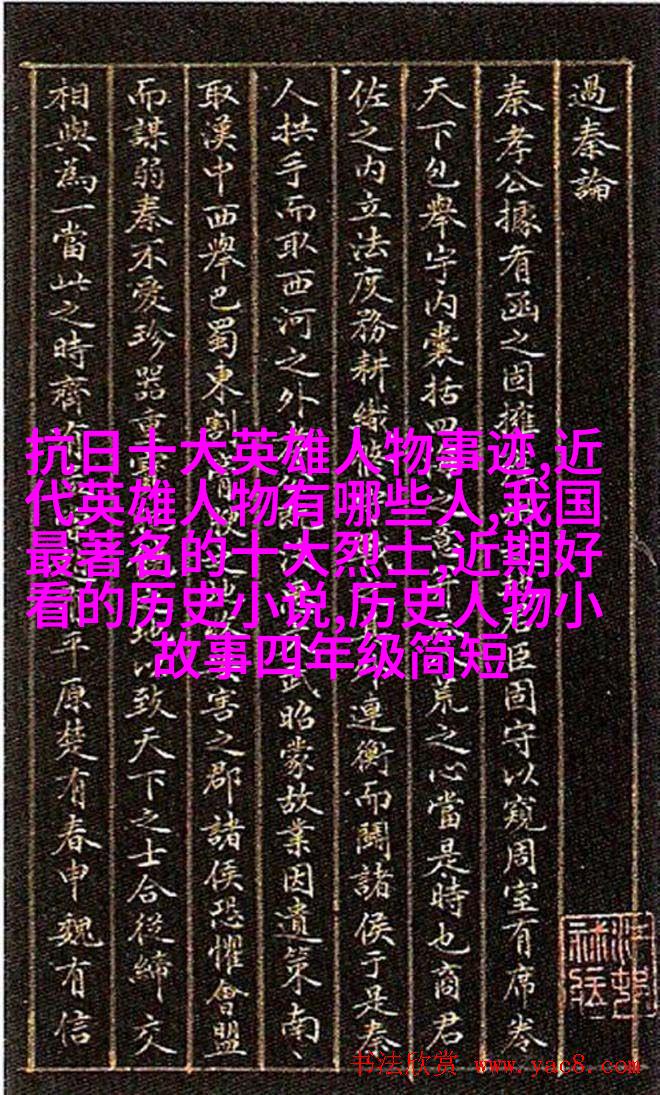 過秦論
秦孝公據有函之固擁 臣固守以窺周室有席卷
天下包舉宇内囊括四 荒之心當是時也商君
佐之内立法度務耕織 連衡而鬭諸侯于是秦
人拱手而取西河之外 武昭蒙故業因遺策南、
取漢中西舉巴蜀東割 害之郡諸侯恐懼會盟
而謀弱秦不愛珍器重 地以致天下之士合從締交
相與為一當此之時齊 平原楚有春申魏有信
抗日十大英雄人物事迹,近
代英雄人物有哪些人,我国
最著名的十大烈士,近期好
看的历史小说,历史人物小
故事四年级简短
书法欣赏 www.yac8.com